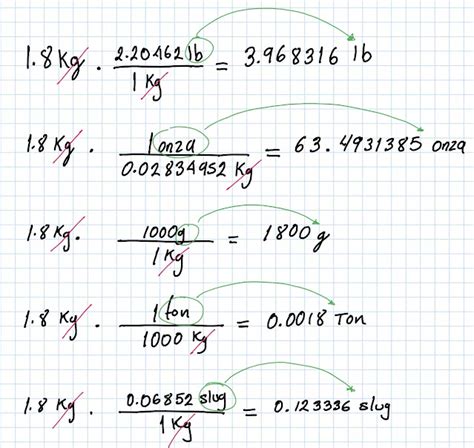 1.8 Kg · 2.20462 lb / 1 Kg = 3.968316 lb
1.8 Kg · 1 onza / 0.02834952 Kg = 63.4931385 onza
1.8 Kg · 1000g / 1 Kg = 1800 g
1.8 Kg · 1 ton / 1000 Kg = 0.0018 Ton
1.8 Kg · 0.06852 slug / 1 Kg = 0.123336 slug